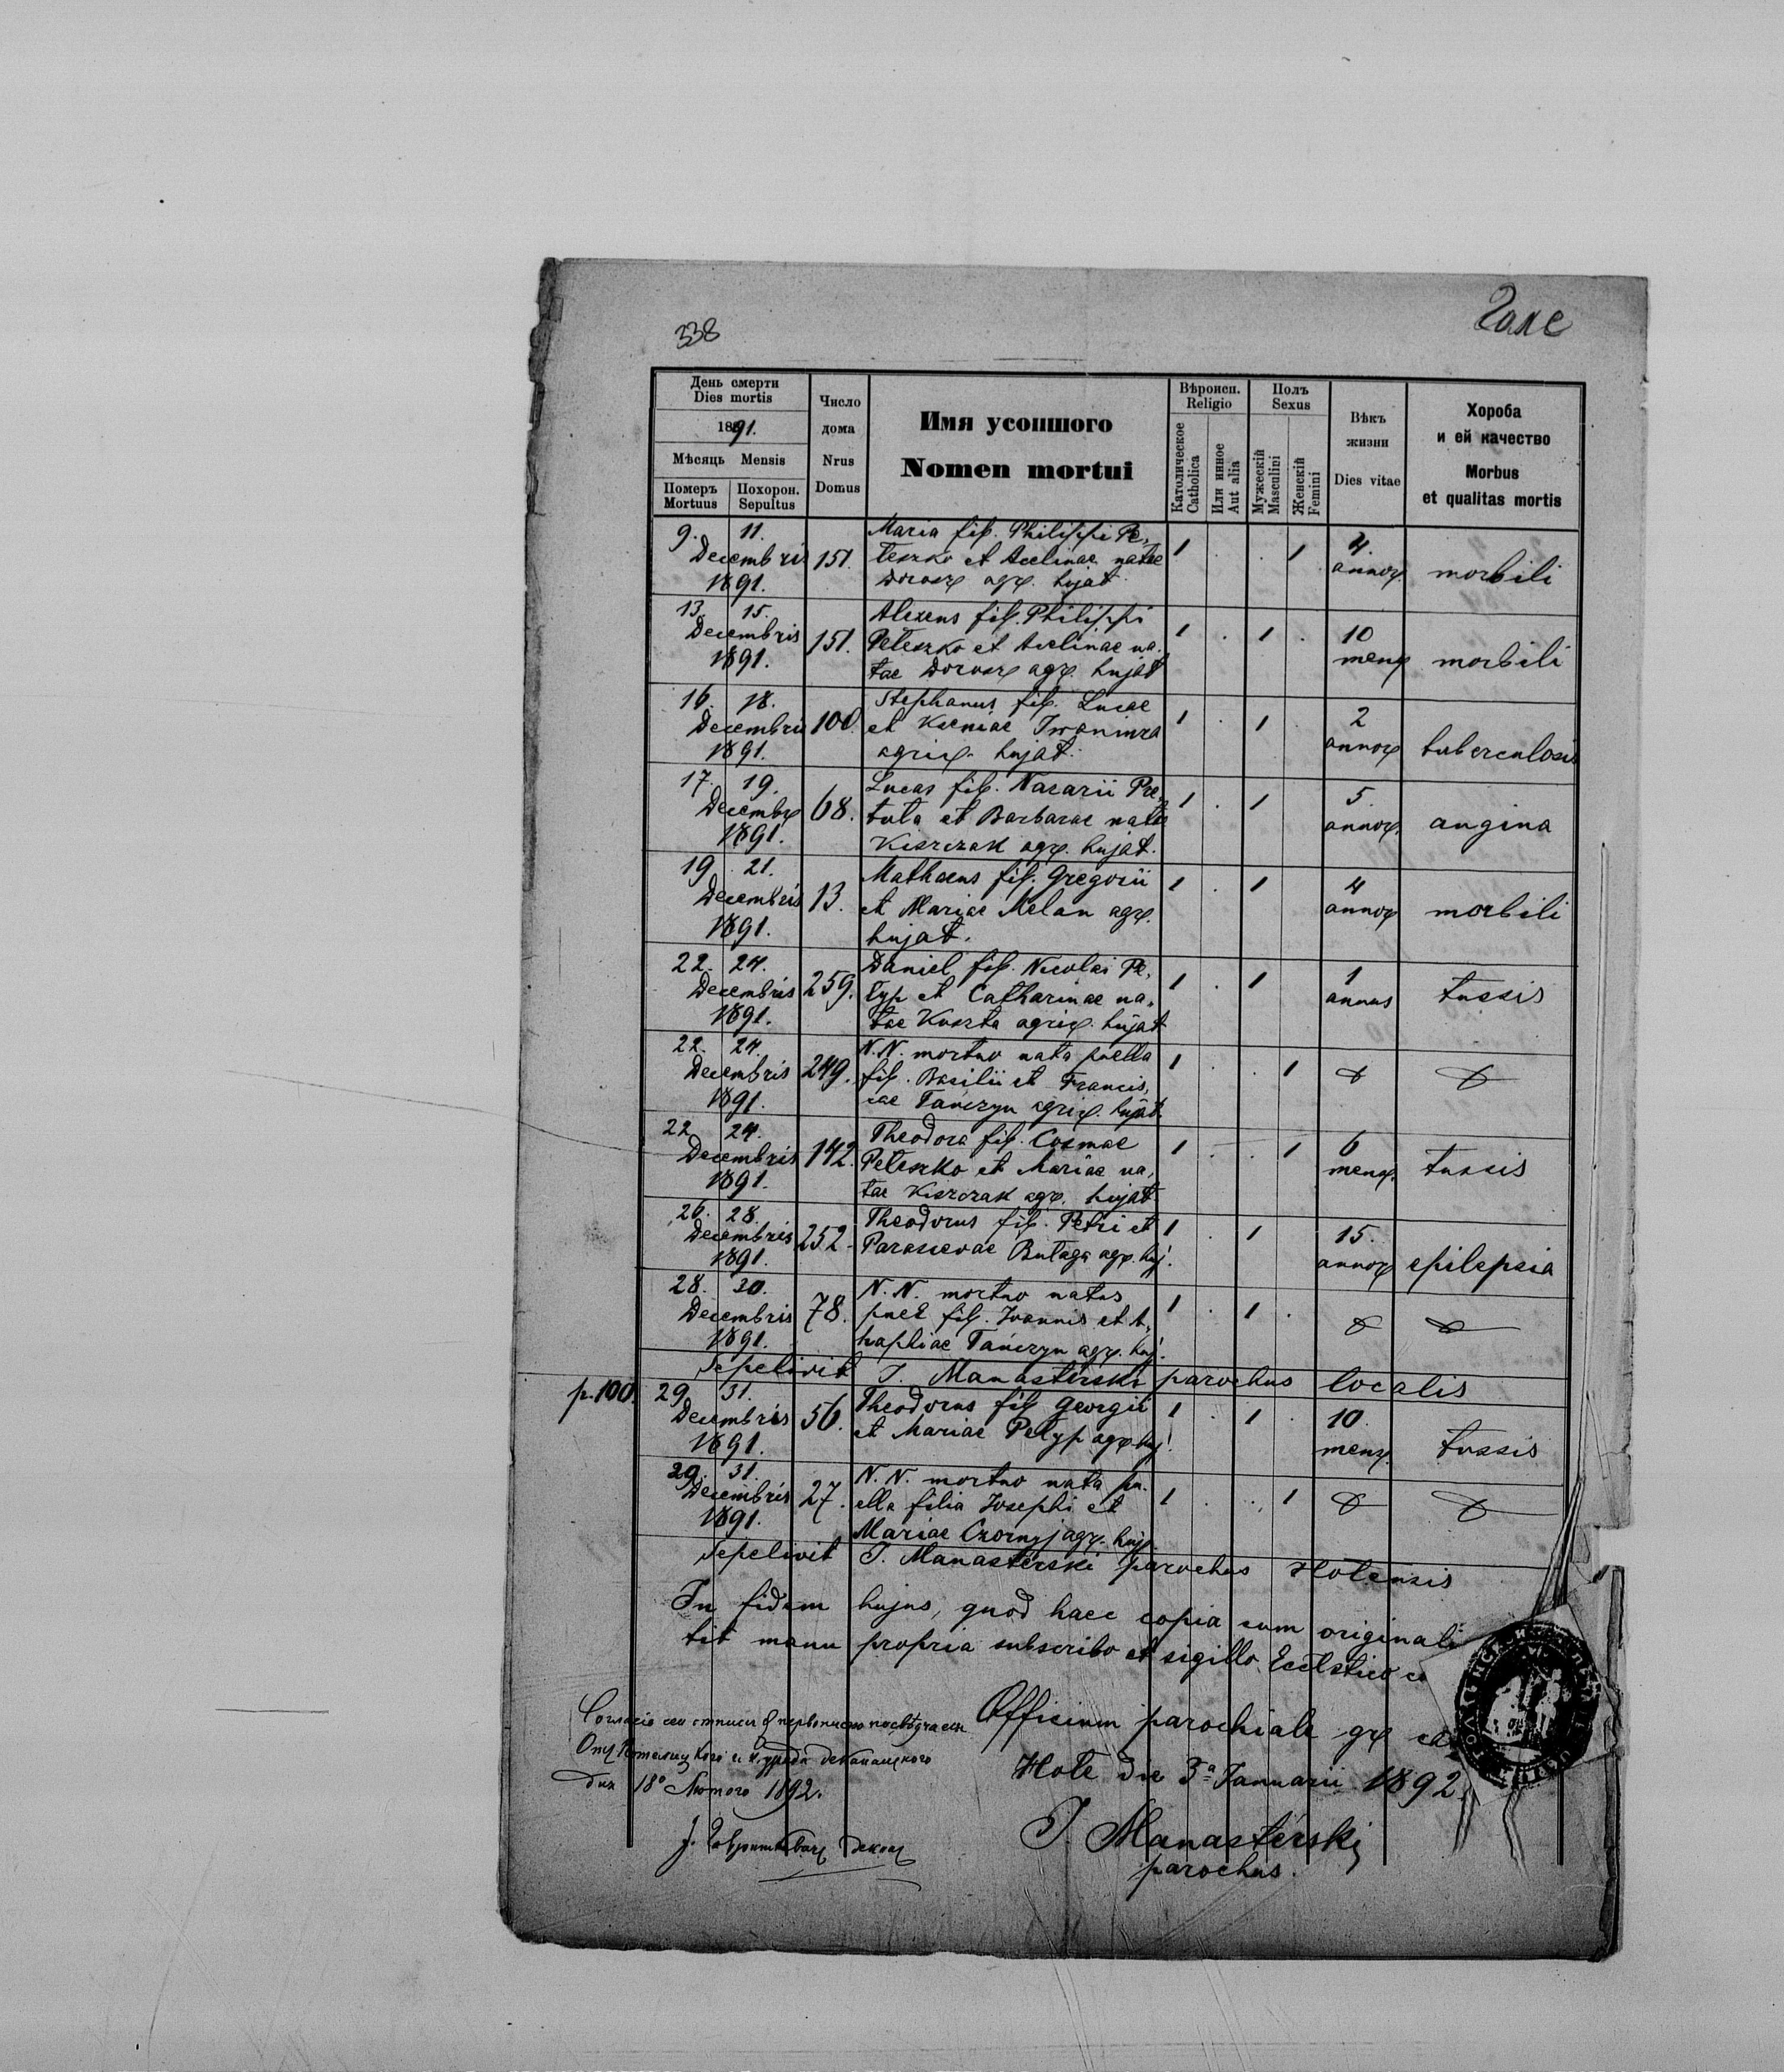 338
День смерти
Dies mortis
1891.
Мѣсяць Mensis
Померъ Похорон.
Mortuus Sepultus
Число
дома
Nrus
Domus
Имя усопшого
Nomen mortui
Вѣроисп.
Religio
Католическое
Catholica
Или инное
Aut alia
Полъ
Sexus
Мужескій
Masculini
Женскій
Femini
Вѣкъ
жизни
Dies vitae
Хороба
и ей качество
Morbus
et qualitas mortis
9. 11.
Decembris
1891.
151.
Maria fil. Philippi Pe,
teszko et Acelinae natae
agr. hujat.
1 . . 1
4.
annor.
morbili
13. 15.
Decembris
1891.
151.
Alexens fil. Philippi
Peteszko et Acelinae na,
tae agr. hujat
1 . 1 .
10
mens
morbili
16. 18.
Decembris
1891.
100.
Stephanus fil. Lucae
et Kseniae
agric. hujat.
1 . 1 .
2
annor
tuberculosis
17. 19.
Decembr
1891.
68.
Lucas fil. Nazarii Pre,
tula et Barbarae natae
Kiszczak agr. hujat.
1 . 1
5.
annor.
angina
19 21.
Decembris
1891.
13.
Mathaeus fil. Gregorii
et Mariae Melan agr.
hujat.
1 . 1
4
annor
morbili
22. 24.
Decembris
1891.
259.
Daniel fil. Nicolai Pe,
typ et Catharinae na,
tae Kuszta agric. hujat
1 . 1
1
annus
tussis
22. 24.
Decembris
1891.
249.
N. N. mortuo nata puella
fil. Basilii et Francis,
cae Tańczyn agric. hujat.
1 . . 1
22 24.
Decembris
1891.
142.
Theodora fil. Cosmae
Peteszko et Mariae na,
tae Kiszczak agr. hujat
1 . . 1
6
mens.
tussis
26. 28.
Decembris
1891.
252.
Theodorus fil. Petri et
Parascevae Butaga agr. huj.
1 . 1
15.
annor
epilepsia
28. 30.
Decembris
1891.
78.
N. N. mortuo natus
puer fil. Joannis et A,
haphiae Tańczyn agr. huj.
1 . 1 .
Sepelivit J. Manasterski parochus localis
p. 100.
29 31.
Decembris
1891.
56.
Theodorus fil Georgii
et Mariae Petyp agr huj.
1 . 1 .
10.
mens.
tussis
29. 31.
Decembris
1891.
27.
N. N. mortuo nata pu,
ella filia Josephi et
Mariae Czornyj agr. huj.
1 . . 1
Sepelivit J. Manasterski parochus Hotensis
In fidem hujus, quod haec copia cum originali
tit manu propria subscribo et sigillo
Officium parochiale gr
Hole die 3ª Januarii 1892.
J. Manasterski
parochus.
дня 18º Лютого 1892.